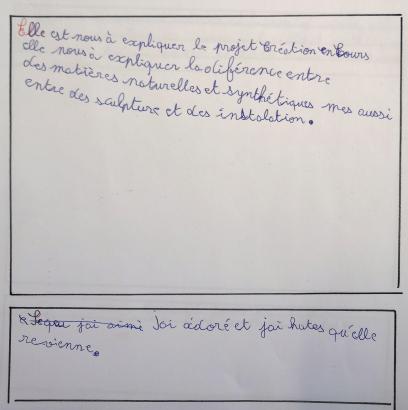 Elle est nous à expliquer le projet Création en Cours
elle nous à expliquer la diférence entre
des matières naturelles et synthétiques mes aussi
entre des sculpture et des instalation.
jai aimé Jai adoré et jai hutes qu'elle
revienne.